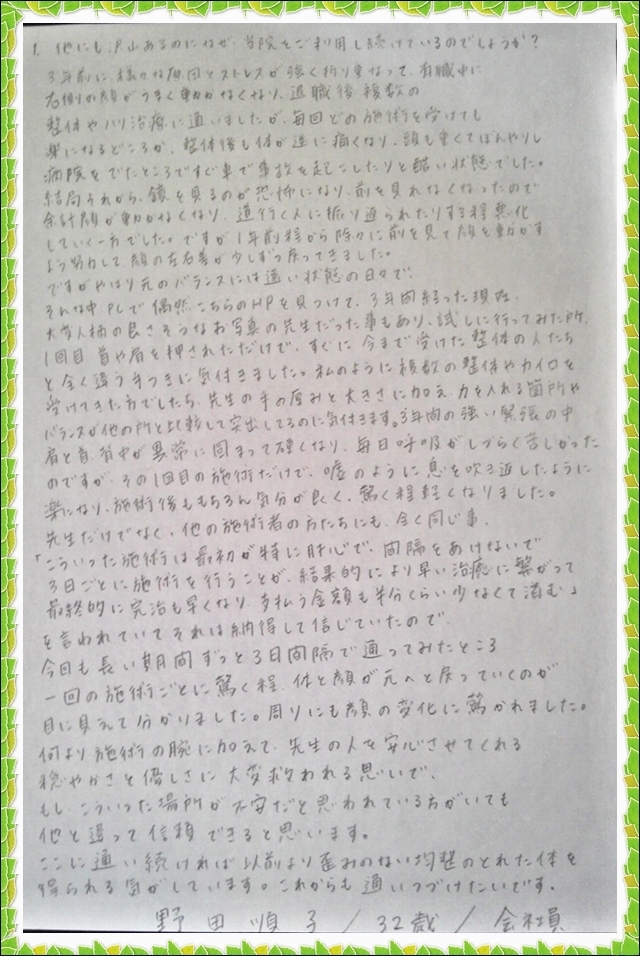 1. 他にも沢山あるのになぜ、当院をご利用し続けているのでしょうか?
3年前に、様々な原因とストレスが強く折り重なって、在職中に
右側の顔がうまく動かなくなり、退職後複数の
整体やハリ治療に通いましたが、毎回どの施術を受けても
楽になるどころか、整体後も体が逆に痛くなり、頭も重くてぼんやりし
病院をでたところですぐ車で事故を起こしたりと酷い状態でした。
結局それから、鏡を見るのが恐怖になり、前を見れなくなったので
余計顔が動かなくなり、道行く人に振り返られたりする程悪化
していく一方でした。ですが1年前程から除々に前を見て顔を動かす
よう努力して、顔の左右差が少しずつ戻ってきました。
ですがやはり元のバランスには遠い状態の日々で、
そんな中PCで偶然こちらのHPを見つけて、3年間経った現在、
大変人柄の良さそうなお写真の先生だった事もあり、試しに行ってみた所、
1回目 首や肩を押されただけで、すぐに今まで受けた整体の人たち
と全く違う手つきに気付きました。私のように複数の整体やカイロを
受けてきた方でしたら、先生の手の厚みと大きさに加え、力を入れる箇所や
バランスが他の所と比較して突出してるのに気付きます。3年間の強い緊張の中
肩と首、背中が異常に固まって硬くなり、毎日呼吸がしづらく苦しかった
のですが、その1回目の施術だけで、嘘のように息を吹き返したように
楽になり、施術後ももちろん気分が良く、驚く程軽くなりました。
先生だけでなく、他の施術者の方たちにも、全く同じ事、
「こういった施術は最初が特に肝心で、間隔をあけないで
3日ごとに施術を行うことが、結果的により早い治癒に繋がって
最終的に完治も早くなり、支払う金額も半分くらい少なくて済む」
を言われていてそれは納得して信じていたので、
今回も長い期間ずっと3日間隔で通ってみたところ
一回の施術ごとに驚く程、体と顔が元へと戻っていくのが
目に見えて分かりました。周りにも顔の変化に驚かれました。
何より施術の腕に加えて、先生の人を安心させてくれる
穏やかさと優しさに大変救われる思いで、
もし、こういった場所が不安だと思われている方がいても
他と違って信頼できると思います。
ここに通い続ければ以前より歪みのない均整のとれた体を
得られる気がしています。これからも通いつづけたいです。
野田順子/32歳/会社員